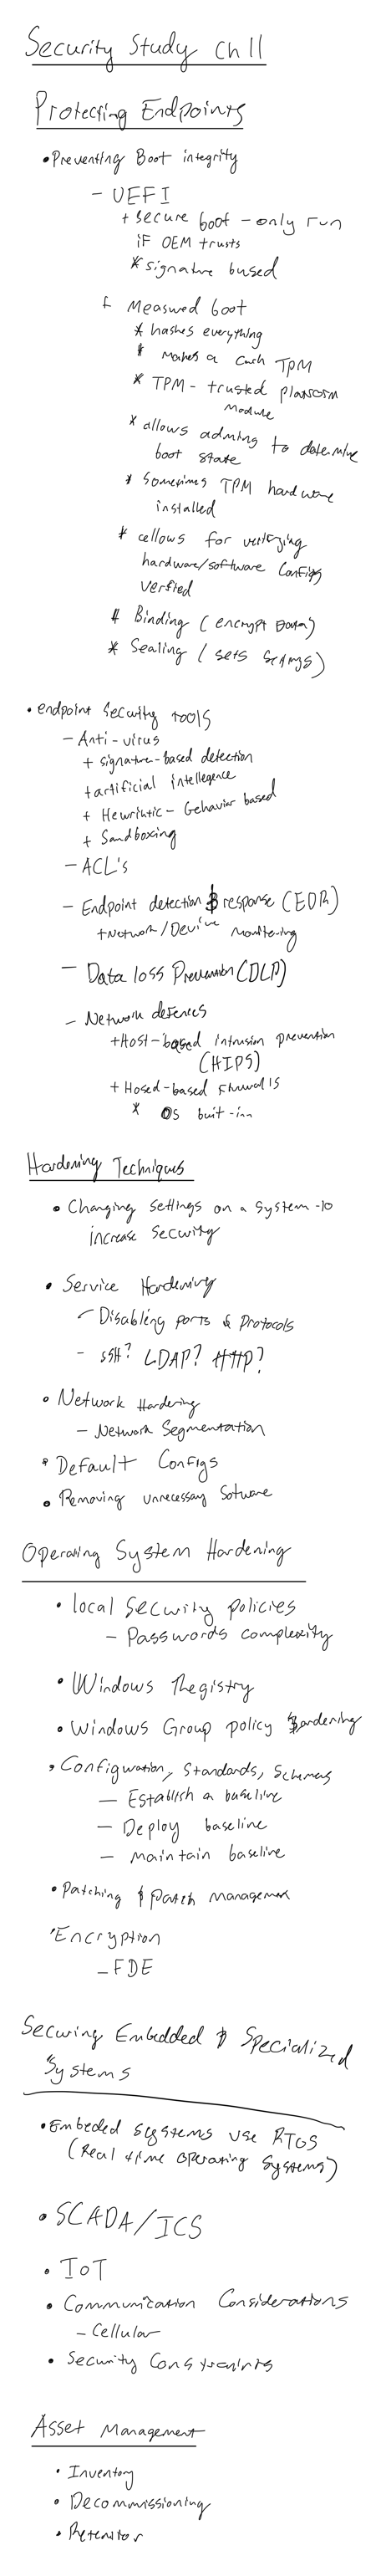 Security Study Ch 11
Protecting Endpoints
• Preventing Boot integrity
- UEFI
+ Secure boot - only run
if OEM trusts
* signature bused
- Measured boot
* hashes everything
* makes a TPM
* TPM - trusted platform
module
* allows admins to determine
boot state
* Sometimes TPM hardware
installed
* allows for verifying
hardware/software Configs
verfied
* Binding (encrypt Data)
* Sealing (sets settings)
• endpoint Security tools
- Anti-virus
+ signature-based detection
+ artificial intellegence
+ Heuristic - behavior based
+ Sandboxing
- ACL's
- Endpoint detection & response (EDR)
+ Network/Device monitering
- Data loss Prevention (DLP)
- Network defences
+ Host-based Intrusion prevention
(HIPS)
+ Hosed-based firewalls
* OS buit-inn
Hardening Techniques
• Changing settings on a system to
increase Security
• Service Hardening
- Disabling ports & Protocols
- SSH? LDAP? HTTP?
• Network Hardering
- Network Segmentation
• Default Configs
• Removing unnecessay Sotware
Operating System Hardening
• local Security policies
- Passwords complexity
• Windows Registry
• Windows Group policy hardering
• Configuration, Standards, Schemas
- Establish a baseline
- Deploy baseline
- maintain baseline
• Patching & patch management
• Encryption
- FDE
Securing Embedded & Specialized
Systems
• Embeded systems use RTOS
(Real time operating Systems)
• SCADA/ICS
• IoT
• Communication Considerations
- Cellular
• Security Constraints
Asset Management
• Inventory
• Decommissioning